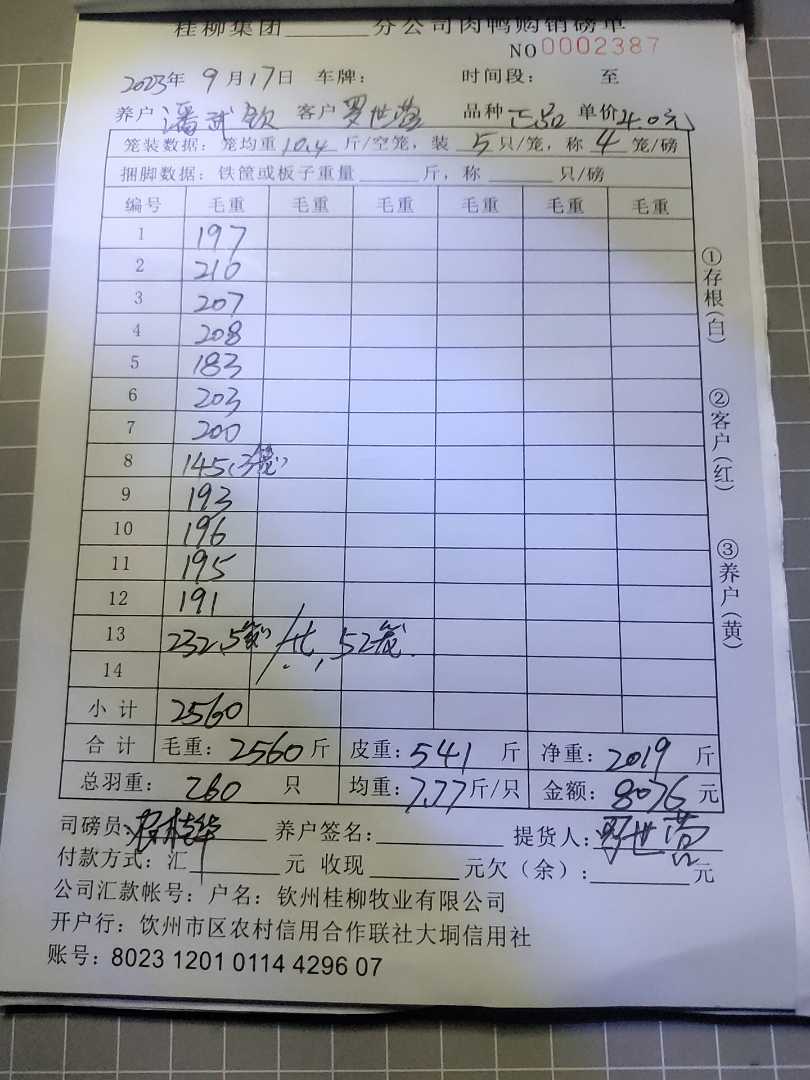 桂柳集团______分公司肉鸭购销磅单
NO 0002387
2023年 9月17日 车牌： 时间段： 至
养户 潘武钦 客户 罗世营 品种 正品 单价 4.0元
笼装数据：笼均重 10.4 斤/空笼，装 5 只/笼，称 4 笼/磅
捆脚数据：铁筐或板子重量______斤，称______只/磅
编号 毛重 毛重 毛重 毛重 毛重 毛重
1 197
2 210
3 207
4 208
5 183
6 203
7 200
8 145(3笼)
9 193
10 196
11 195
12 191
13 232(5笼) / 共，52笼.
14
小计 2560
合计 毛重：2560斤 皮重：541 斤 净重：2019 斤
总羽重：260 只 均重：7.77斤/只 金额：8076 元
司磅员： 养户签名：______ 提货人：罗世营
付款方式：汇______元 收现______元欠（余）：______元
公司汇款帐号：户名：钦州桂柳牧业有限公司
开户行：饮州市区农村信用合作联社大垌信用社
账号：8023 1201 0114 4296 07
①存根(白)
②客户(红)
③养户(黄)